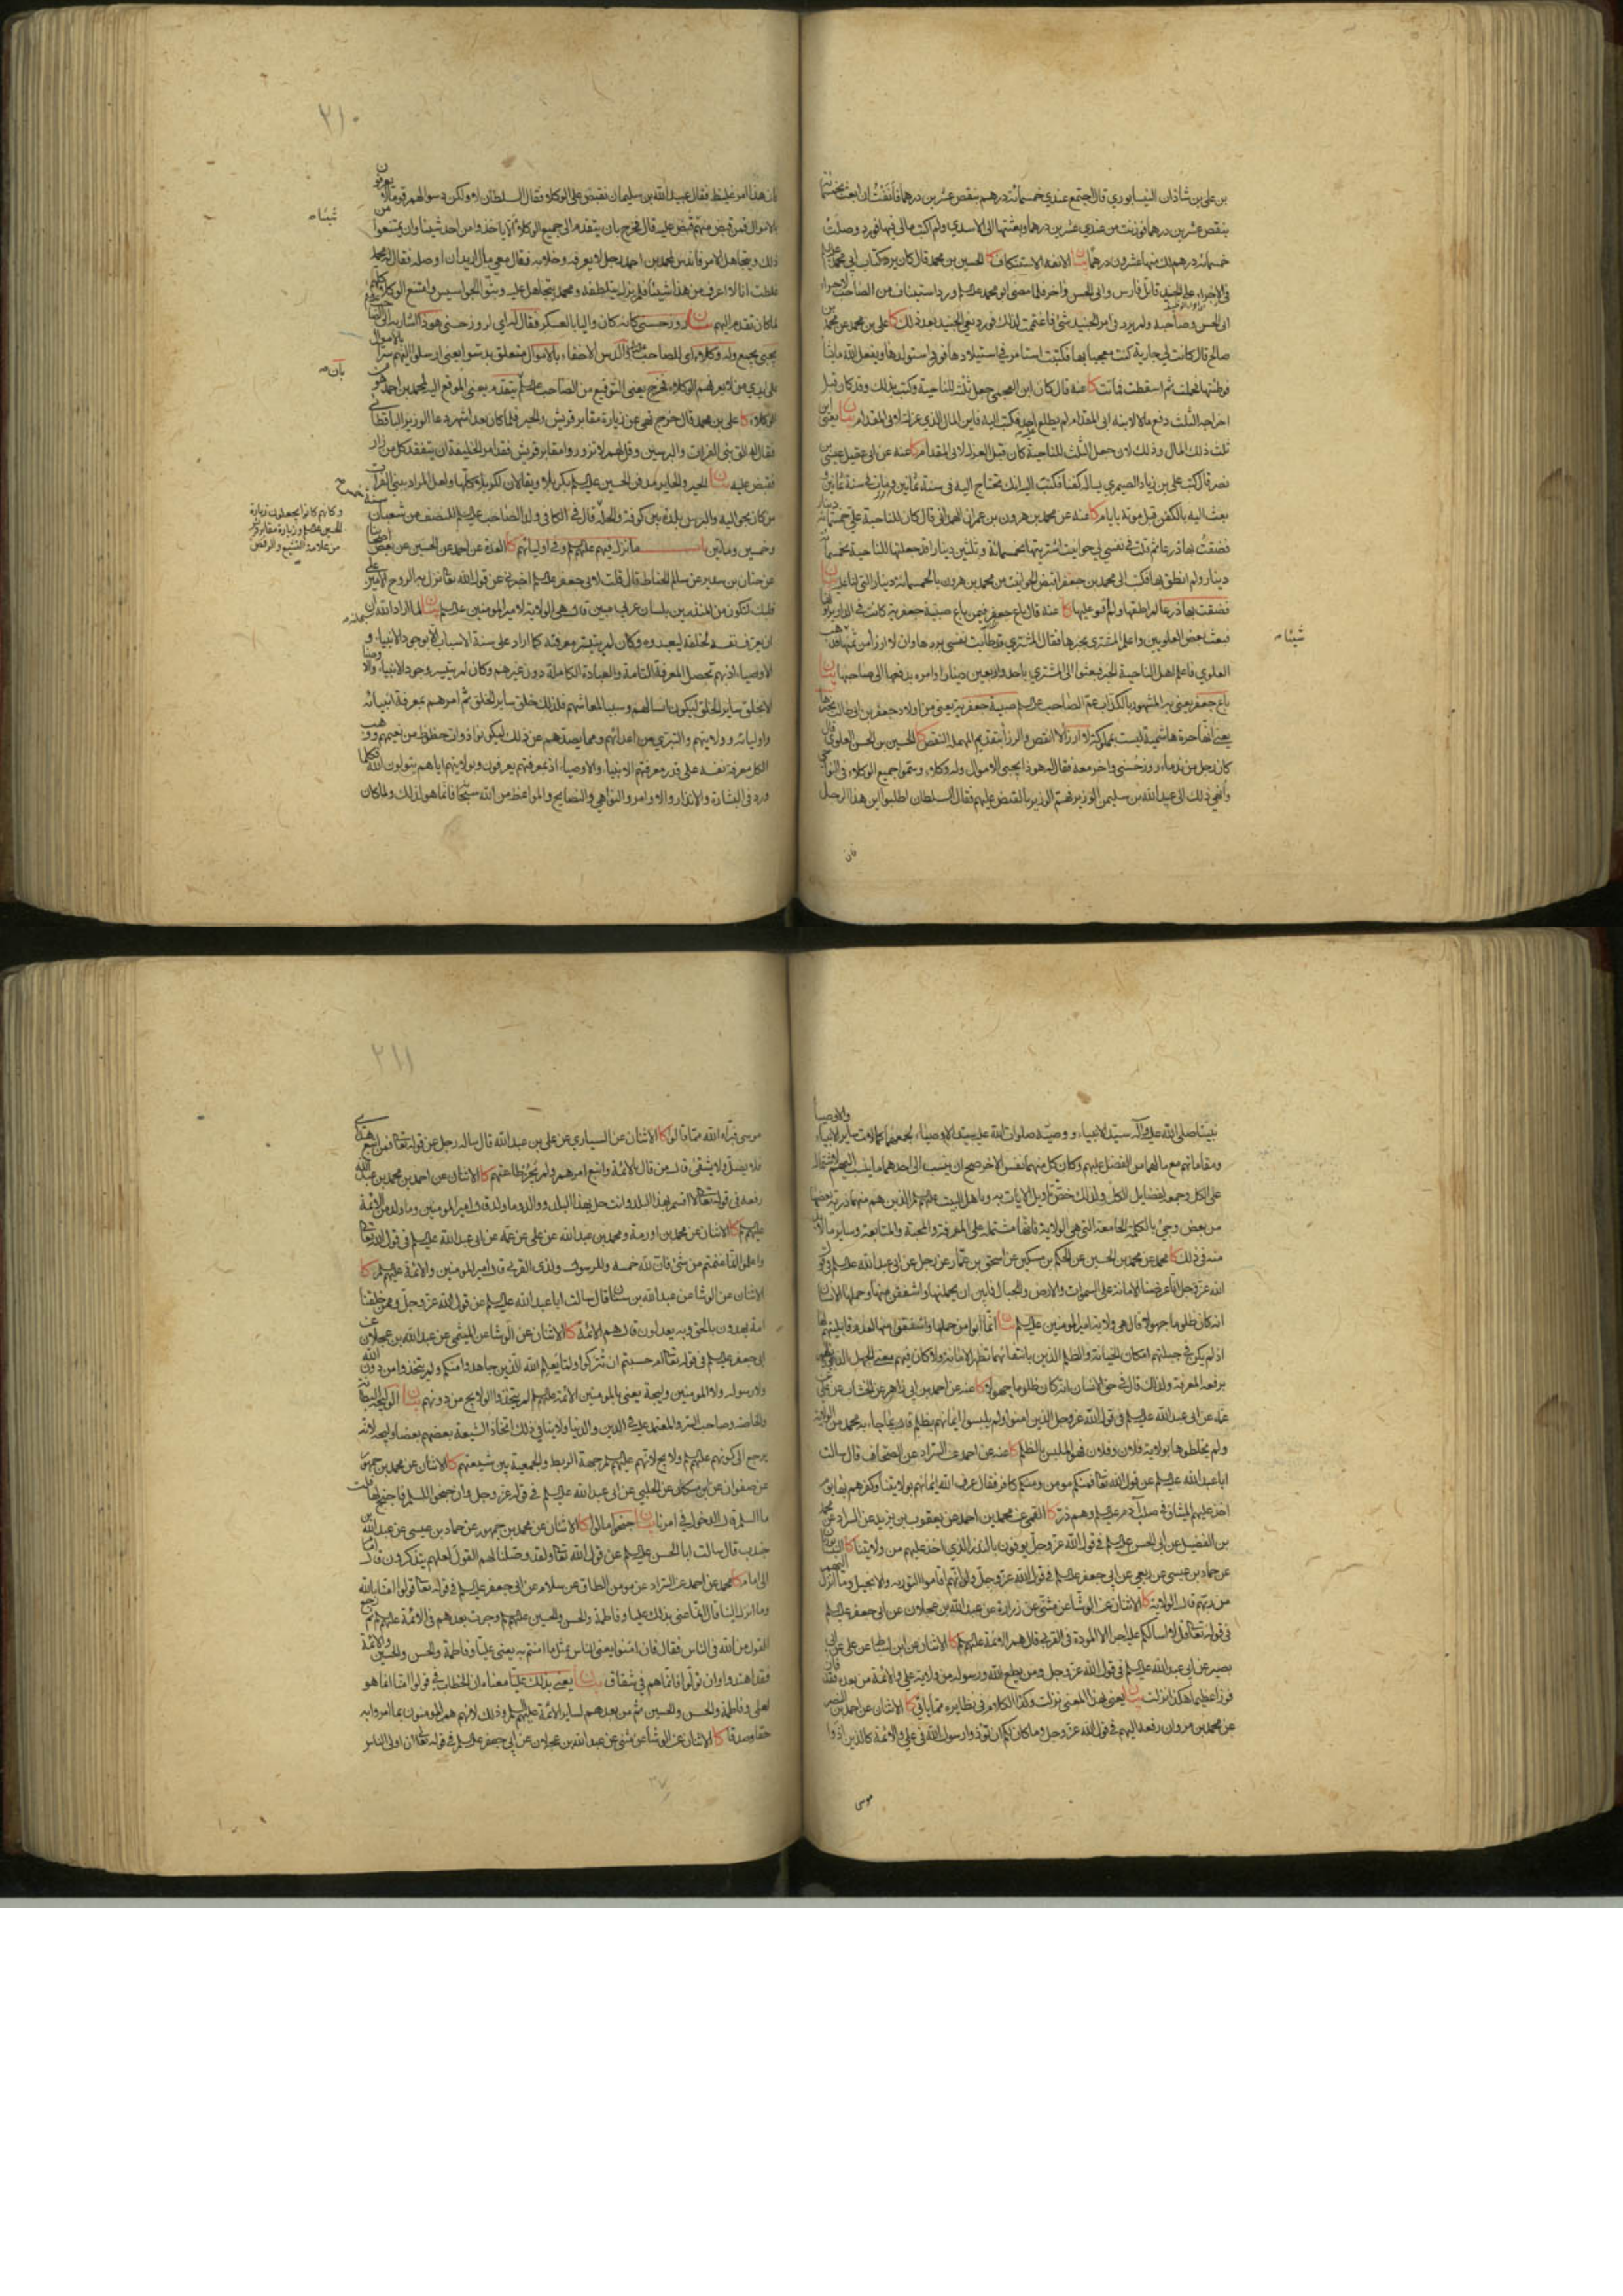 بن علي بن شاذان النيسابوري قال اجتمع عندي خمسمائة درهم ينقص عشرين درهما فأنفت ان ابعث بخمسمائة
ينقص عشرين درهما فوزنت من عندي عشرين درهما وبعثتها الى الاسدي ولم اكتب مالي فيها فورد وصلت
خمسمائة درهم لك منها عشرون درهما بيان الانفة الاستنكاف كا الحسين بن محمد قال كان يرد كتاب ابي محمد
في الاجراء على الجنيد قاتل فارس وابي الحسن واخر فلما مضى ابو محمد ورد استيناف من الصاحب لاجراء
ابي الحسن وصاحبه ولم يرد في امر الجنيد شئ فاغتممت لذلك فورد نعي الجنيد بعد ذلك كا علي بن محمد عن محمد بن
صالح قال كانت لي جارية كنت معجبا بها فكتبت استامر في استيلادها فورد استولدها ويفعل الله ما يشاء
فوطئتها فحبلت ثم اسقطت فماتت كا عنه قال كان ابن العجمي جعل ثلثه للناحية وكتب بذلك وقد كان قبل
اخراجه الثلث دفع مالا لابنه ابي المقدام لم يطلع عليه احد فكتب اليه فاين المال الذي عزلته لابي المقدام بيان يعني
ثلث ذلك المال وذلك لان جعل الثلث للناحية كان قبل العزل لابي المقدام كا عنه عن ابي عقيل عيسى بن
نصر قال كتب علي بن زياد الصيمري يساله كفنا فكتب اليه انك تحتاج اليه في سنة ثمانين فمات في سنة ثمانين و
بعث اليه بالكفن قبل موته بايام كا عنه عن محمد بن هرون بن عمران الهمداني قال كان للناحية علي خمسمائة دينار
فضقت بها ذرعا ثم قلت في نفسي لي حوانيت اشتريتها بخمسمائة وثلثين دينارا قد جعلتها للناحية بخمسمائة
دينار ولم انطق بها فكتب الى محمد بن جعفر اقبض الحوانيت من محمد بن هرون بالخمسمائة دينار التي لنا عليه بيان
فضقت بها ذرعا لم اطقها ولم اقو عليها كا عنه قال باع جعفر فيمن باع صبية جعفرية كانت في الدار يربونها
فبعث بعض العلويين واعلم المشتري بخبرها فقال المشتري قد طابت نفسي بردها وان لا ارزأ من ثمنها شيئا فذهب
العلوي فاعلم اهل الناحية الخبر فبعثوا الى المشتري باحد واربعين دينارا وامره بدفعها الى صاحبها بيان
باع جعفر يعني به المشهور بالكذاب عم الصاحب صبية جعفرية يعني من اولاد جعفر بن ابي طالب
يعني انها حرة هاشمية ليست بمملوكة لا ارزأ لا انقص والرزأ بتقديم المهملة النقص كا الحسين بن الحسن العلوي قال
كان رجل من ندماء روز حسني واخر معه فقال له هوذا يجبي الاموال وله وكلاء وسموا جميع الوكلاء في النواحي
وانهي ذلك الى عبيد الله بن سليمن الوزير فهم الوزير بالقبض عليهم فقال السلطان اطلبوا اين هذا الرجل
شيئا
فان
٢١٠
فان هذا امر غليظ فقال عبيد الله بن سليمان نقبض على الوكلاء فقال السلطان لا ولكن دسوا لهم قوما لا يعرفون
بالاموال فمن قبض منهم قبض عليه قال فخرج بان يتقدم الى جميع الوكلاء الا ياخذوا من احد شيئا وان يمتنعوا من
ذلك ويتجاهل الامر فاندس لمحمد بن احمد رجل لا يعرفه وخلا به فقال معي مال اريد ان اوصله فقال له محمد
غلطت انا لا اعرف من هذا شيئا فلم يزل يتلطفه ومحمد يتجاهل عليه وبثوا الجواسيس وامتنع الوكلاء كلهم
لما كان تقدم اليهم بيان روز حسني كانه كان واليا بالعسكر فقال له اي لروز حسني هوذا
يجبي يجمع وله وكلاء اي للصاحب والدس الاخفاء بالاموال متعلق بدسوا يعني ارسلوا اليهم سرا
على يدي من لا يعرفهم الوكلاء فخرج يعني التوقيع من الصاحب يتقدم يعني الموقع اليه لمحمد بن احمد هو من
الوكلاء كا علي بن محمد قال خرج نهي عن زيارة مقابر قريش والحير فلما كان بعد اشهر دعا الوزير الباقطاني
فقال له الق بني الفرات والبرسيين وقل لهم لا تزوروا مقابر قريش فقد امر الخليفة ان يتفقد كل من زار
فقبض عليه بيان الحير والحاير مدفن الحسين بكربلا ويقالان لكربلا كلها ولعل المراد ببني الفرات
من كان بحواليه والبرس بلدة بين كوفة والحلة قال في الكافي ولد الصاحب للنصف من شعبان سنة خمس
وخمسين وماتين باب ما نزل فيهم عليهم السلم وفي اوليائهم كا العدة عن احمد عن الحسين عن بعض اصحابنا
عن حنان بن سدير عن سالم الحناط قال قلت لابي جعفر اخبرني عن قول الله تعالى نزل به الروح الامين على
قلبك لتكون من المنذرين بلسان عربي مبين قال هي الولاية لامير المؤمنين بيان لما اراد الله ان
ان يعرف نفسه لخلقه ليعبدوه وكان لم يتيسر معرفته كما اراد على سنة الاسباب الا بوجود الانبياء و
الاوصياء اذ بهم تحصل المعرفة التامة والعبادة الكاملة دون غيرهم وكان لم يتيسر وجود الانبياء والاوصياء
الا بخلق ساير الخلق ليكون انسا لهم وسببا لمعاشهم فلذلك خلق ساير الخلق ثم امرهم بمعرفة انبيائه
واوليائه وولايتهم والتبري من اعدائهم ومما يصدهم عن ذلك ليكونوا ذوات حظوظ من نعيمهم ووهب
الكل معرفة نفسه على قدر معرفتهم الانبياء والاوصياء اذ بمعرفتهم يعرفون وبولايتهم اياهم يتولون الله فكلما
ورد في البشارة والانذار والاوامر والنواهي والنصايح والمواعظ من الله سبحانه فانما هو لذلك ولما كان
شيئا
بان
وكانهم كانوا يجعلون زيارة
الحسين وزيارة مقابر قريش
من علامة التشيع والرفض
نبينا صلى الله عليه وآله سيد الانبياء ووصيه صلوات الله عليه سيد الاوصياء لجمعهما كمالات ساير الانبياء والاوصياء
ومقاماتهم مع ما لهما من الفضل عليهم وكان كل منهما نفس الاخر صح ان ينسب الى احدهما ما ينسب اليهم لاشتماله
على الكل وجمعه لفضايل الكل ولذلك خص تاويل الايات به وباهل البيت الذين هم منهما ذرية بعضها
من بعض وجئ بالكلمة الجامعة التي هي الولاية فانها مشتملة على المعرفة والمحبة والمتابعة وساير ما لابد
منه في ذلك كا محمد عن محمد بن الحسين عن الحكم بن مسكين عن اسحق بن عمار عن رجل عن ابي عبد الله في قول
الله عز وجل انا عرضنا الامانة على السموات والارض والجبال فابين ان يحملنها واشفقن منها وحملها الانسان
انه كان ظلوما جهولا قال هي ولاية امير المؤمنين بيان انما ابوا من حملها واشفقوا منها لعدم قابليتهم لها
اذ لم يكن في جبلتهم امكان الخيانة والظلم الذين بانتفائهما تظهر الامانة ولا كان فيهم معنى الجهل الذي
برفعه المعرفة ولذلك قال في حق الانسان انه كان ظلوما جهولا كا عنه عن احمد بن ابي زاهر عن الخشاب عن علي عن
عمه عن ابي عبد الله في قول الله عز وجل الذين امنوا ولم يلبسوا ايمانهم بظلم قال بما جاء به محمد من الولاية
ولم يخلطوها بولاية فلان وفلان فهو الملبس بالظلم كا عنه عن احمد عن السراد عن الصحاف قال سالت
ابا عبد الله عن قول الله تعالى فمنكم مومن ومنكم كافر فقال عرف الله ايمانهم بولايتنا وكفرهم بها يوم
اخذ عليهم الميثاق في صلب آدم وهم ذر كا القمي عن محمد بن احمد عن يعقوب بن يزيد عن السراد عن محمد
بن الفضيل عن ابي الحسن في قول الله عز وجل يوفون بالنذر الذي اخذ عليهم من ولايتنا كا
عن حماد بن عيسى عن ربعي عن ابي جعفر في قول الله عز وجل ولو انهم اقاموا التورية والانجيل وما انزل اليهم
من ربهم قال الولاية كا الاثنان عن الوشا عن مثنى عن زرارة عن عبد الله بن عجلان عن ابي جعفر
في قوله تعالى قل لا اسالكم عليه اجرا الا المودة في القربى قال هم الائمة كا الاثنان عن ابن اسباط عن علي عن ابي
بصير عن ابي عبد الله في قول الله عز وجل ومن يطع الله ورسوله من ولاية علي والائمة من بعده فقد فاز
فوزا عظيما هكذا نزلت بيان يعني بهذا المعنى نزلت وكذا الكلام في نظايره مما ياتي كا الاثنان عن احمد بن النضر
عن محمد بن مروان رفعه اليهم في قول الله عز وجل وما كان لكم ان توذوا رسول الله في علي والائمة كالذين اذوا
موسى
٢١١
موسى فبراه الله مما قالوا كا الاثنان عن السياري عن علي بن عبد الله قال ساله رجل عن قوله تعالى فمن اتبع هداي
فلا يضل ولا يشقى قال من قال بالائمة واتبع امرهم ولم يجز طاعتهم كا الاثنان عن احمد بن محمد بن عبد الله
رفعه في قوله تعالى لا اقسم بهذا البلد وانت حل بهذا البلد ووالد وما ولد قال امير المومنين وما ولد من الائمة
كا الاثنان عن محمد بن اورمة ومحمد بن عبد الله عن علي عن عمه عن ابي عبد الله في قول الله تعالى
واعلموا انما غنمتم من شئ فان لله خمسه وللرسول ولذي القربى قال امير المومنين والائمة كا
الاثنان عن الوشا عن عبد الله بن سنان قال سالت ابا عبد الله عن قول الله عز وجل وممن خلقنا
امة يهدون بالحق وبه يعدلون قال هم الائمة كا الاثنان عن الوشا عن الميثمي عن عبد الله بن عجلان عن
ابي جعفر في قوله تعالى ام حسبتم ان تتركوا ولما يعلم الله الذين جاهدوا منكم ولم يتخذوا من دون الله
ولا رسوله ولا المومنين وليجة يعني بالمومنين الائمة لم يتخذوا الولايج من دونهم بيان الوليجة البطانة
والخاصة وصاحب السر والمعتمد عليه في الدين والدنيا ولا ينافي ذلك اتخاذ الشيعة بعضهم بعضا وليجة لانه
يرجع الى كونهم ولايج لانهم جهة الربط والجمعية بين شيعتهم كا الاثنان عن محمد بن جمهور
عن صفوان عن ابن مسكان عن الحلبي عن ابي عبد الله في قوله عز وجل وان جنحوا للسلم فاجنح لها قلت
ما السلم قال الدخول في امرنا بيان جنحوا مالوا كا الاثنان عن محمد بن جمهور عن حماد بن عيسى عن عبد الله بن
جندب قال سالت ابا الحسن عن قول الله تعالى ولقد وصلنا لهم القول لعلهم يتذكرون قال امام
الى امام كا محمد عن احمد عن السراد عن مومن الطاق عن سلام عن ابي جعفر في قوله تعالى قولوا امنا بالله
وما انزل الينا قال انما عنى بذلك عليا وفاطمة والحسن والحسين وجرت بعدهم في الائمة ثم رجع
القول من الله في الناس فقال فان امنوا يعني الناس بمثل ما امنتم به يعني عليا وفاطمة والحسن والحسين والائمة
فقد اهتدوا وان تولوا فانما هم في شقاق بيان يعني بذلك عليا معناه ان الخطاب في قولوا امنا انما هو
لعلي وفاطمة والحسن والحسين ثم من بعدهم لساير الائمة وذلك لانهم هم المومنون بما امروا به
حقا وصدقا كا الاثنان عن الوشا عن مثنى عن عبد الله بن عجلان عن ابي جعفر في قوله تعالى ان اولى الناس